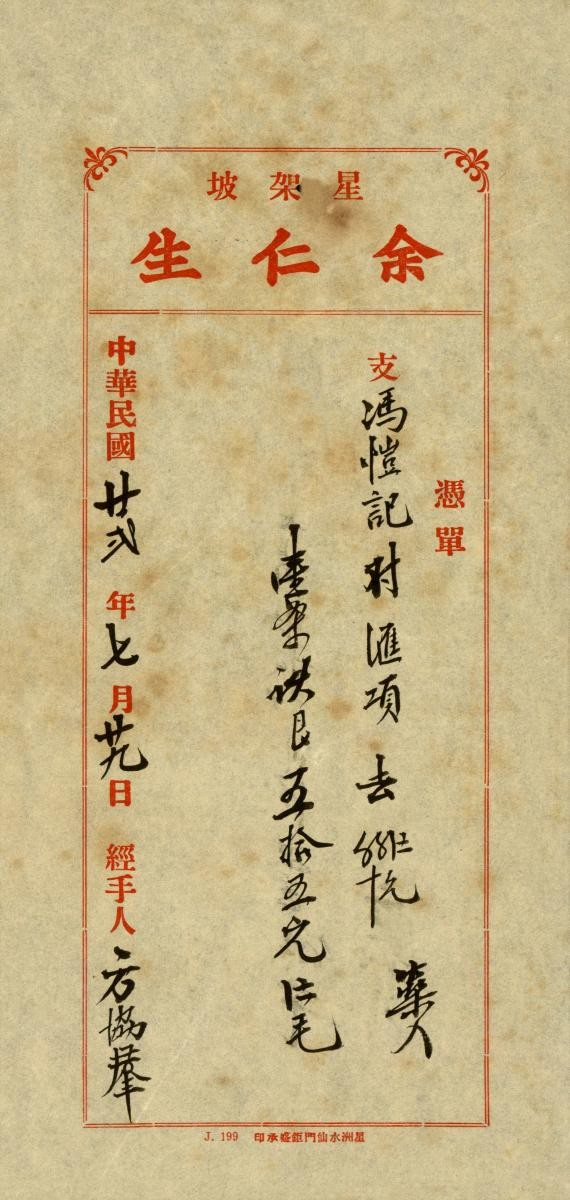 星架坡
余仁生
憑單
支馮愷記对滙項去
五拾五元
中華民國廿弍年七月廿九日 經手人方協羣
星洲水仙門鉅盛承印 J. 199